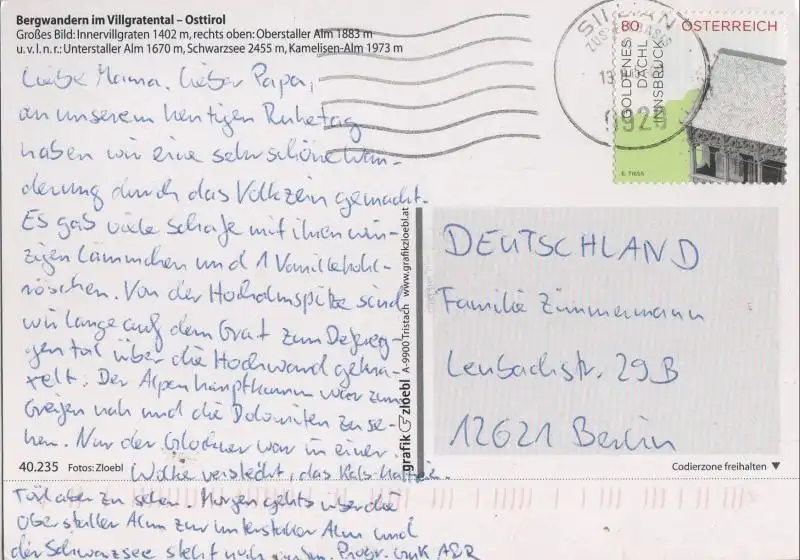 Bergwandern im Villgratental – Osttirol
Großes Bild: Innervillgraten 1402 m, rechts oben: Oberstaller Alm 1883 m
u.v.l.n.r.: Unterstaller Alm 1670 m, Schwarzsee 2455 m, Kamelisen-Alm 1973 m
Liebe Mama, lieber Papa,
an unserem heutigen Ruhetag
haben wir eine sehr schöne Wan-
derung durch das Volkzein gemacht.
Es gab viele Schafe mit ihren win-
zigen Lämmchen und 1 Vanillekohl-
röschen. Von der Hochalmspitze sind
wir lange auf dem Grat zum Defereg-
gental über die Hochwand gekra-
xelt. Der Alpenhauptkamm war zum
Greifen nah und die Dolomiten zu se-
hen. Nur der Glockner war in einer
Wolke versteckt, das Kals-Matreier
Törl aber zu sehen. Morgen gehts über die
Oberstaller Alm zur Unterstaller Alm und
der Schwarzsee steht auf
80
ÖSTERREICH
GOLDENES
DACHL
INNSBRUCK
E. TIEß
SILLIAN
9920
DEUTSCHLAND
Familie Zimmermann
Lenbachstr. 29B
12621 Berlin
grafik zloebl A-9900 Tristach www.grafikzloebl.at
40.235 Fotos: Zloebl
Codierzone freihalten ▼